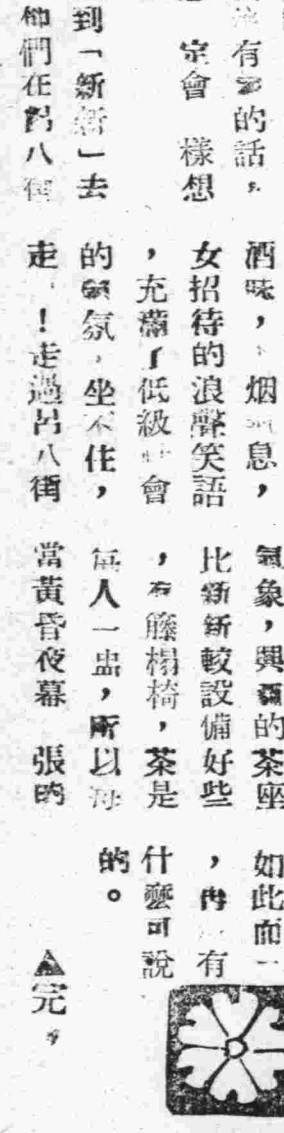 有的話,
定會樣想
到「新新」去
們在呂八街
酒味,烟息,
女招待的浪聲笑語
,充滿了低級會
的氣氛,坐不住,
走!走過呂八街
氣象,的茶座
比新新較設備好些
,有籐榻椅,茶是
每人一盅,所以每
當黃昏夜幕張的
如此而一
,再有
什麼可說
的。
▲完